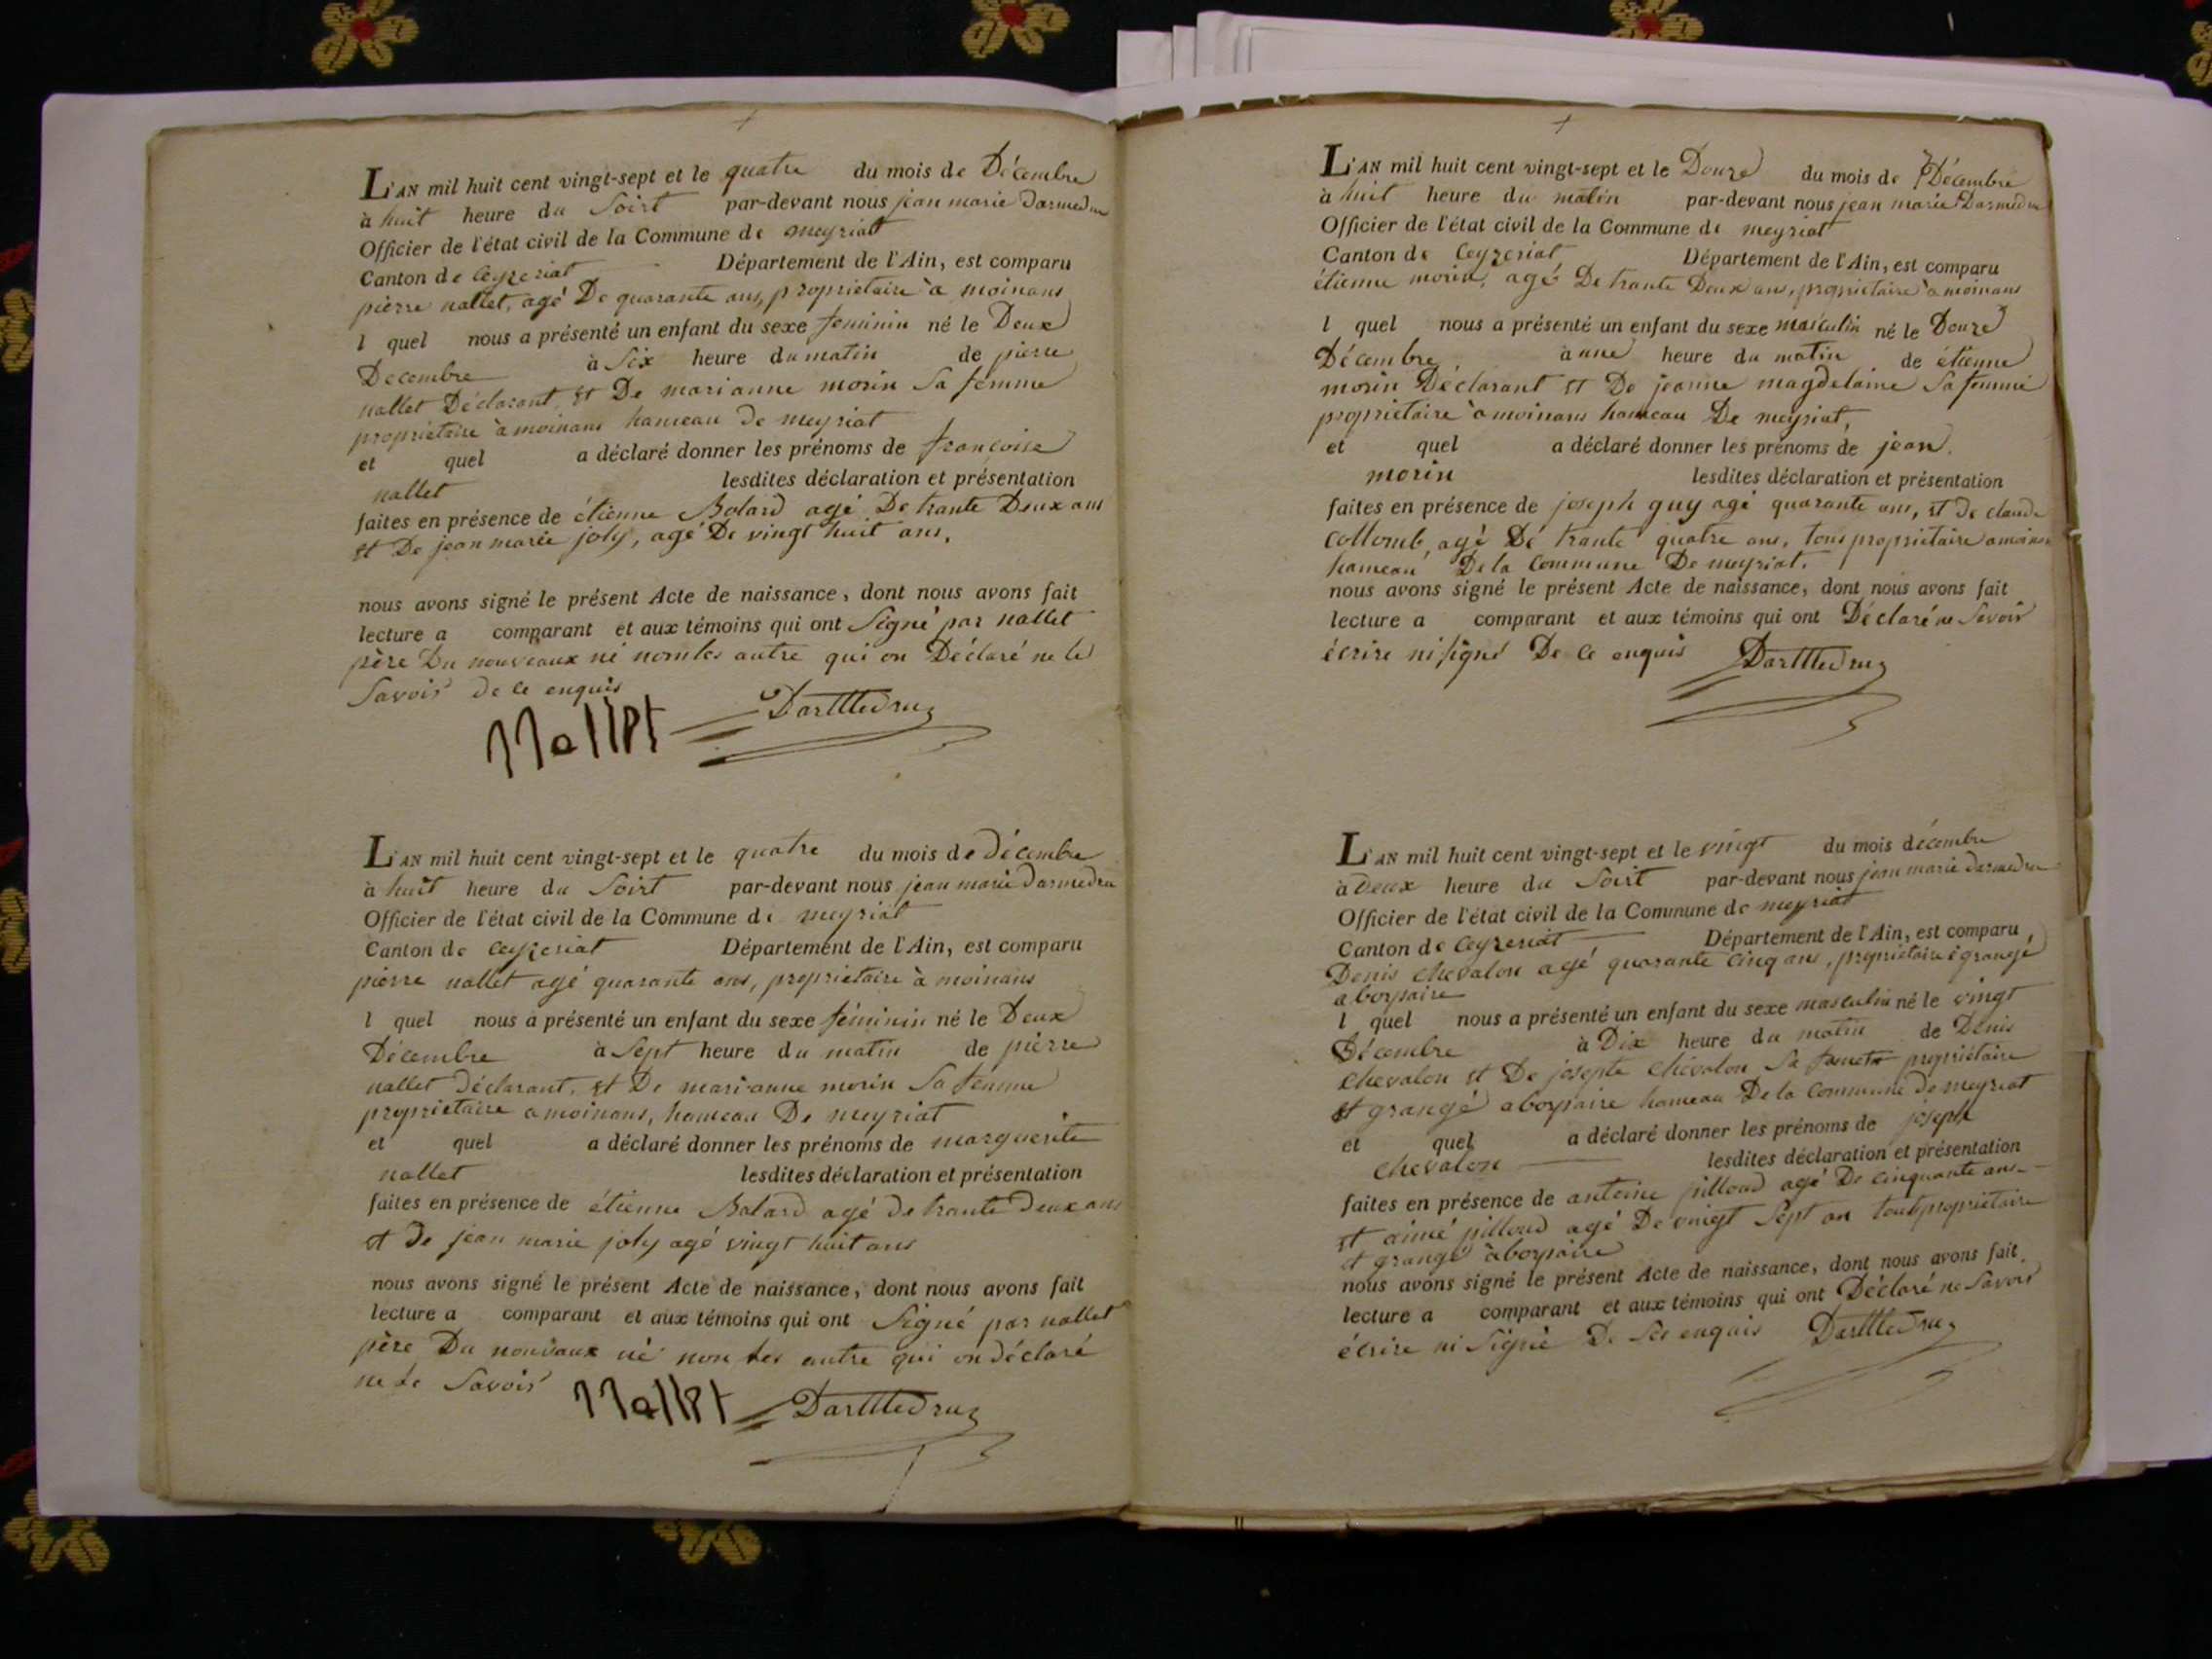 L'AN mil huit cent vingt-sept et le quatre du mois de Décembre
à huit heure du Soirt par-devant nous jean marie Darmedru
Officier de l'état civil de la Commune de meyriat
Canton de Ceyzeriat Département de l'Ain, est comparu
pierre nallet, agé De quarante ans, proprietaire à moinans
l quel nous a présenté un enfant du sexe feminin né le Deux
Decembre à Six heure du matin de pierre
nallet Déclarant, et De marianne morin Sa femme
proprietaire à moinans hameau de meyriat
et quel a déclaré donner les prénoms de françoise
nallet lesdites déclaration et présentation
faites en présence de étienne Bolard agé De trante Deux ans
et De jean marie joly, agé De vingt huit ans,
nous avons signé le présent Acte de naissance, dont nous avons fait
lecture a comparant et aux témoins qui ont Signé par nallet
père Du nouveaux né non les autre qui on Déclaré ne le
Savoir de ce enquis
Nallet DarMedruz
L'AN mil huit cent vingt-sept et le quatre du mois de décembre
à huit heure du Soirt par-devant nous jean marie Darmedru
Officier de l'état civil de la Commune de meyriat
Canton de Ceyzeriat Département de l'Ain, est comparu
pierre nallet agé quarante ans, proprietaire à moinans
l quel nous a présenté un enfant du sexe féminin né le Deux
Décembre à Sept heure du matin de pierre
nallet déclarant, et De marianne morin Sa femme
proprietaire a moinans, hameau De meyriat
et quel a déclaré donner les prénoms de marguerite
nallet lesdites déclaration et présentation
faites en présence de étienne Bolard agé de trante Deux ans
et De jean marie joly agé vingt huit ans
nous avons signé le présent Acte de naissance, dont nous avons fait
lecture a comparant et aux témoins qui ont Signé par nallet
père Du nouvaux né non les autre qui on déclaré
ne le Savoir
Nallet DarMedruz
L'AN mil huit cent vingt-sept et le Douze du mois de Décembre
à huit heure du matin par-devant nous jean marie Darmedru
Officier de l'état civil de la Commune de meyriat
Canton de Ceyzeriat Département de l'Ain, est comparu
étienne morin, agé De trante Deux ans, proprietaire à moinans
l quel nous a présenté un enfant du sexe masculin né le Douze
Décembre à une heure du matin de étienne
morin Déclarant et De jeanne magdelaine Sa femme
proprietaire à moinans hameau De meyriat,
et quel a déclaré donner les prénoms de jean
morin lesdites déclaration et présentation
faites en présence de joseph guy agé quarante ans, et de claude
Collomb, agé De trante quatre ans, tous proprietaire a moinans
hameau De la Commune De meyriat.
nous avons signé le présent Acte de naissance, dont nous avons fait
lecture a comparant et aux témoins qui ont Déclaré ne Savoir
écrire ni signé De Ce enquis DarMedruz
L'AN mil huit cent vingt-sept et le vingt du mois décembre
à Deux heure du Soirt par-devant nous jean marie darmedru
Officier de l'état civil de la Commune de meyriat
Canton de Ceyzeriat Département de l'Ain, est comparu
Denis chevalon agé quarante cinq ans, proprietaire grangé
a boypaire
l quel nous a présenté un enfant du sexe masculin né le vingt
Décembre à Dix heure du matin de Denis
Chevalon et De josepte chevalon Sa propriétaire
et grangé a boypaire hameau De la Commune De meyriat
et quel a déclaré donner les prénoms de joseph
chevalon lesdites déclaration et présentation
faites en présence de antoine pilloud agé De cinquante ans
et aimé pilloud agé De vingt Sept an tout proprietaire
et grangé à boypaire
nous avons signé le présent Acte de naissance, dont nous avons fait
lecture a comparant et aux témoins qui ont Déclaré ne Savoir
écrire ni Signé De Ses enquis DarMedruz